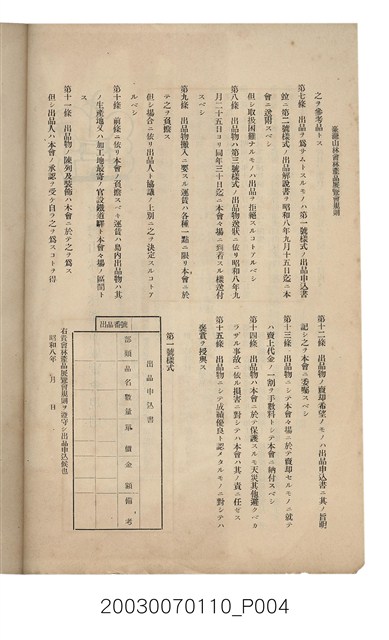 臺灣山林會林產品展覽會規則
之ヲ參考品トス
第七條 出品ヲ爲サムトスルモノハ第一號樣式ノ出品申込書
竝ニ第二號樣式ノ出品解說書ヲ昭和八年九月十五日迄ニ本
會ニ送附スベシ
但シ取扱困難ナルモノハ出品ヲ拒絕スルコトアルベシ
第八條 出品物ハ第三號樣式ノ出品物送狀ニ依リ昭和八年九
月二十五日ヨリ同年三十日迄ニ本會々場ニ到着スル樣送付
スベシ
第九條 出品物搬入ニ要スル運賃ハ各種一點ニ限リ本會ニ於
テ之ヲ負擔ス
但シ場合ニ依リ出品人ト協議ノ上別ニ之ヲ決定スルコトア
ルベシ
第十條 前條ニ依リ本會ノ負擔スベキ運賃ハ島內出品物ハ其
ノ生產地又ハ加工地最寄ノ官設鐵道驛ト本會々場ノ區間ト
ス
第十一條 出品物ノ陳列及裝飾ハ本會ニ於テ之ヲ爲ス
但シ出品人ハ本會ノ承認ヲ受ケ自ラ之ヲ爲スコトヲ得
第十二條 出品物ノ賣却希望ノモノハ出品申込書ニ其ノ旨明
記シ之ヲ本會ニ委囑スベシ
第十三條 出品物ニシテ本會々場ニ於テ賣却セルモノニ就テ
ハ賣上代金ノ一割ヲ手數料トシテ本會ニ納付スベシ
第十四條 出品物ハ本會ニ於テ保護スルモ天災其他避クベカ
ラザル事故ニ依ル損害ニ對シテハ本會ハ其ノ責ニ任ゼス
第十五條 出品物ニシテ成績優良ト認メタルモノニ對シテハ
褒賞ヲ授與ス
第一號樣式
出品申込書
部類 品名 數量 單價 金額 備考
出品番號
右貴會林產品展覽會規則ヲ遵守シ出品申込候也
昭和八年 月 日
20030070110_P004